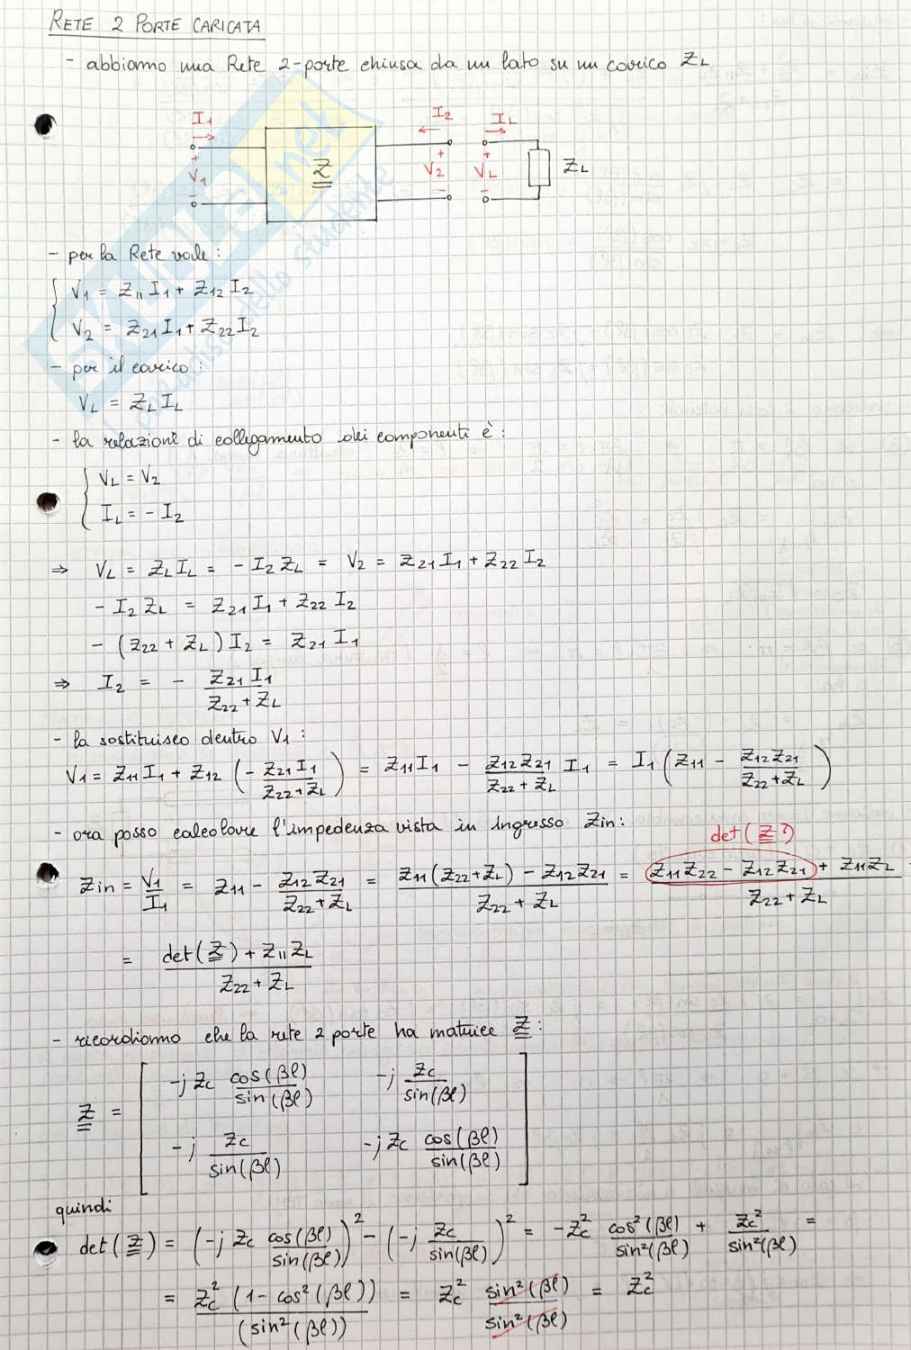 RETE 2 PORTE CARICATA
- abbiamo una Rete 2-porte chiusa da un lato su un carico ZL
I1 I2 IL
+ + +
V1 Z V2 VL ZL
- - -
- per la Rete vale:
V1 = Z11 I1 + Z12 I2
V2 = Z21 I1 + Z22 I2
- per il carico:
VL = ZL IL
- la relazione di collegamento dei componenti è:
VL = V2
IL = - I2
⇒ VL = ZL IL = - I2 ZL = V2 = Z21 I1 + Z22 I2
- I2 ZL = Z21 I1 + Z22 I2
- (Z22 + ZL) I2 = Z21 I1
⇒ I2 = - Z21 I1 / (Z22 + ZL)
- la sostituisco dentro V1:
V1 = Z11 I1 + Z12 (- Z21 I1 / (Z22 + ZL)) = Z11 I1 - Z12 Z21 / (Z22 + ZL) I1 = I1 (Z11 - Z12 Z21 / (Z22 + ZL))
- ora posso calcolare l'impedenza vista in ingresso Zin:
det(Z)
Zin = V1 / I1 = Z11 - Z12 Z21 / (Z22 + ZL) = (Z11 (Z22 + ZL) - Z12 Z21) / (Z22 + ZL) = (Z11 Z22 - Z12 Z21 + Z11 ZL) / (Z22 + ZL) =
= (det(Z) + Z11 ZL) / (Z22 + ZL)
- ricordiamo che la rete 2 porte ha matrice Z:
Z = [ -j Zc cos(βℓ) / sin(βℓ) -j Zc / sin(βℓ)
-j Zc / sin(βℓ) -j Zc cos(βℓ) / sin(βℓ) ]
quindi
det(Z) = (-j Zc cos(βℓ) / sin(βℓ))² - (-j Zc / sin(βℓ))² = - Zc² cos²(βℓ) / sin²(βℓ) + Zc² / sin²(βℓ) =
= Zc² (1 - cos²(βℓ)) / (sin²(βℓ)) = Zc² sin²(βℓ) / sin²(βℓ) = Zc²